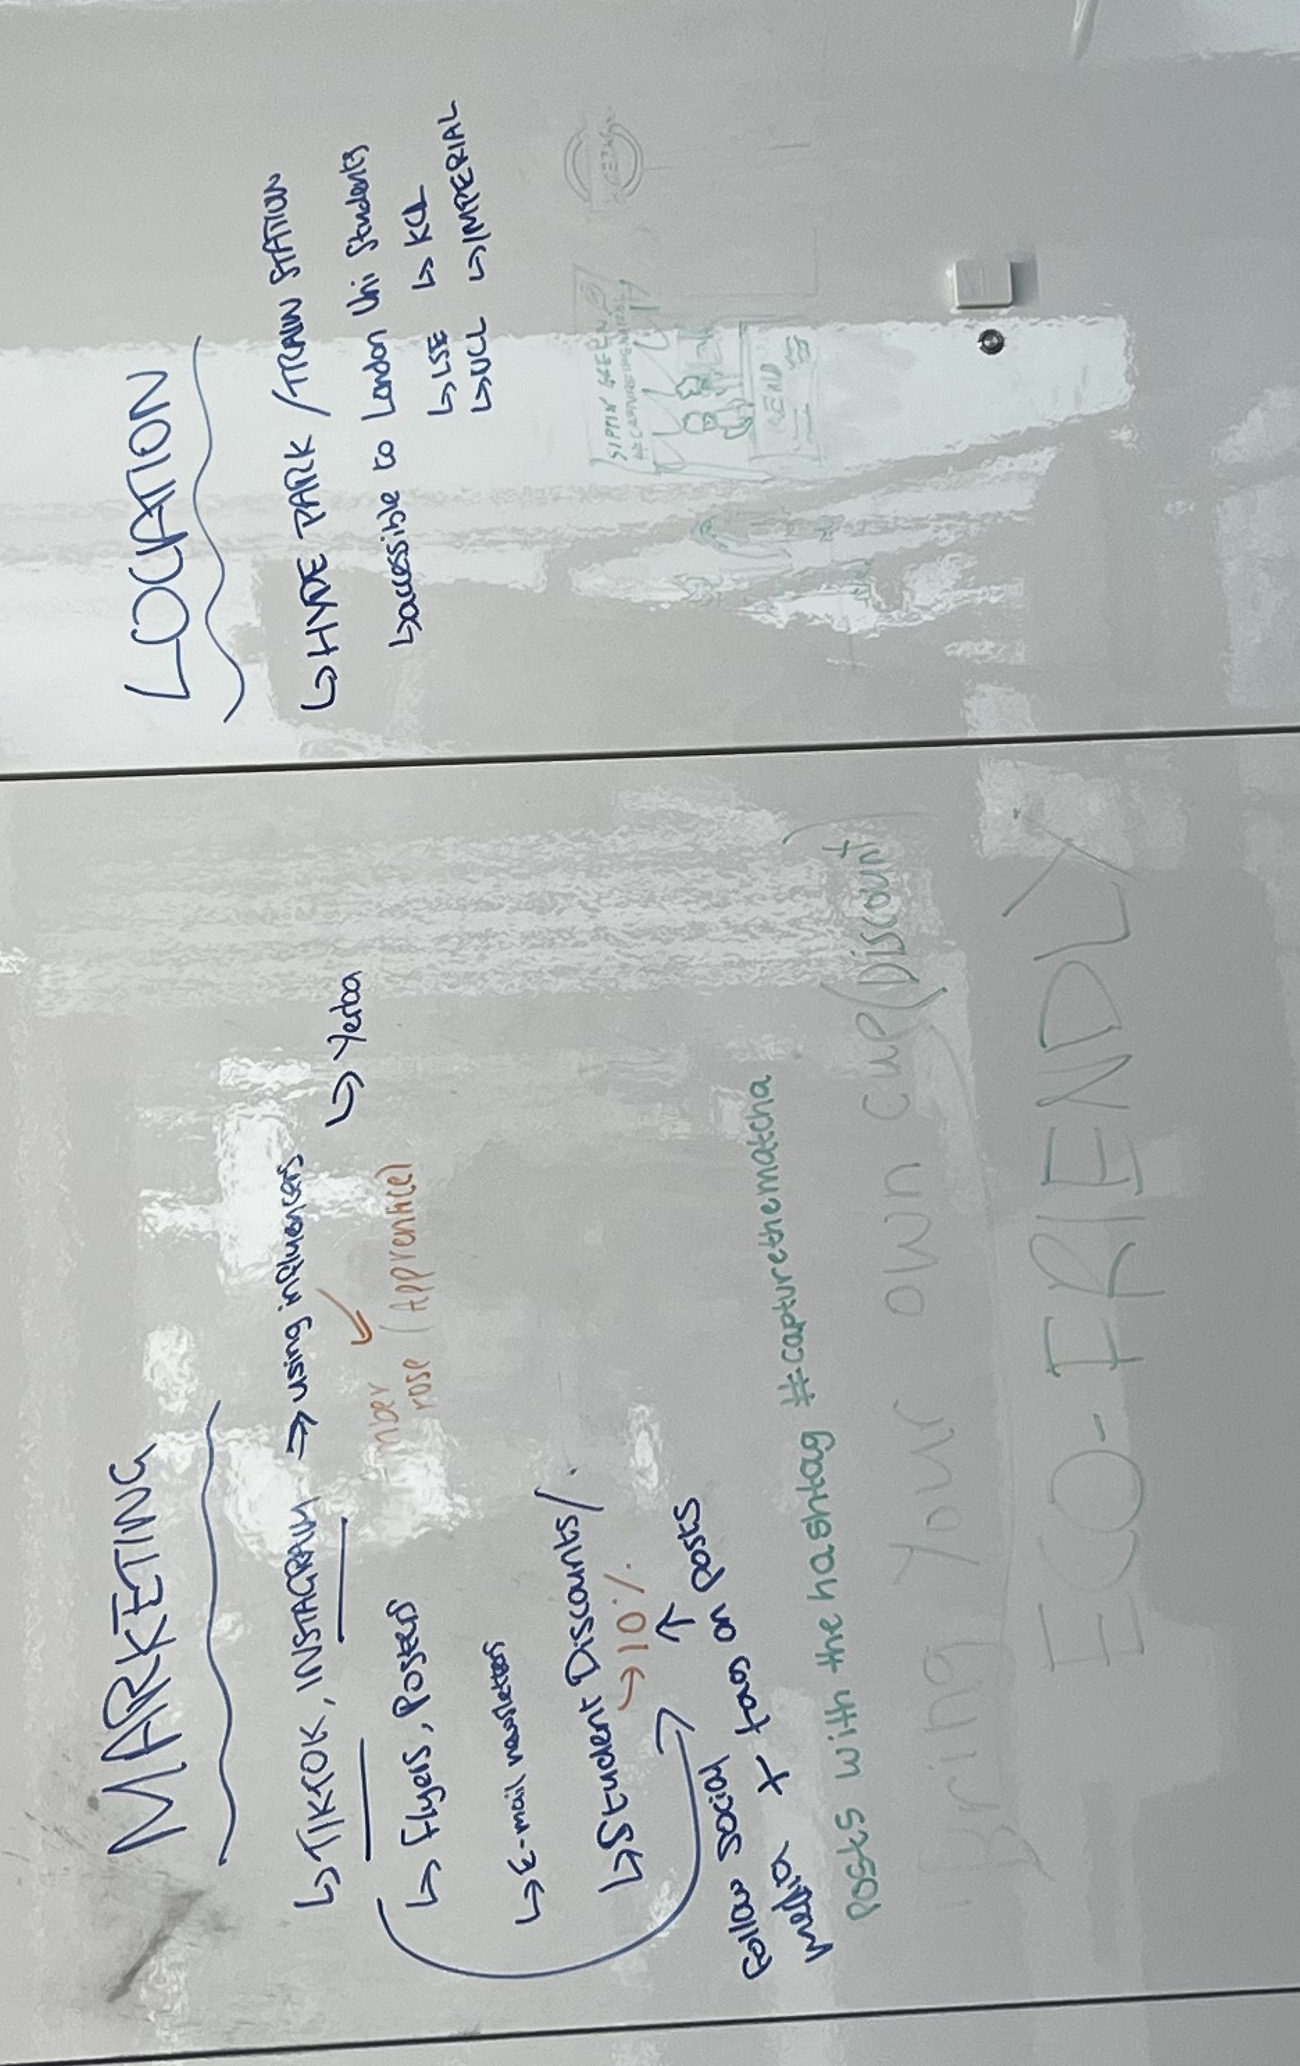 MARKETING
↳ TIKTOK, INSTAGRAM ⇒ using influencers
↳ Yerba
mber
rose (Apprentice)
↳ Flyers, Posters
↳ E-mail newsletters
↳ Student Discounts/.
→ 10%
Follow social
media + tag on posts
Posts with the hashtag #capturethematcha
Bring Your own cup (Discount)
ECO-FRIENDLY
LOCATION
↳ HYDE PARK / TRAIN STATION
↳ accessible to London Uni Students
↳ LSE ↳ KCL
↳ UCL ↳ IMPERIAL
SIPPIN GREEN
#CAPTURETHEMATCHA
MENU